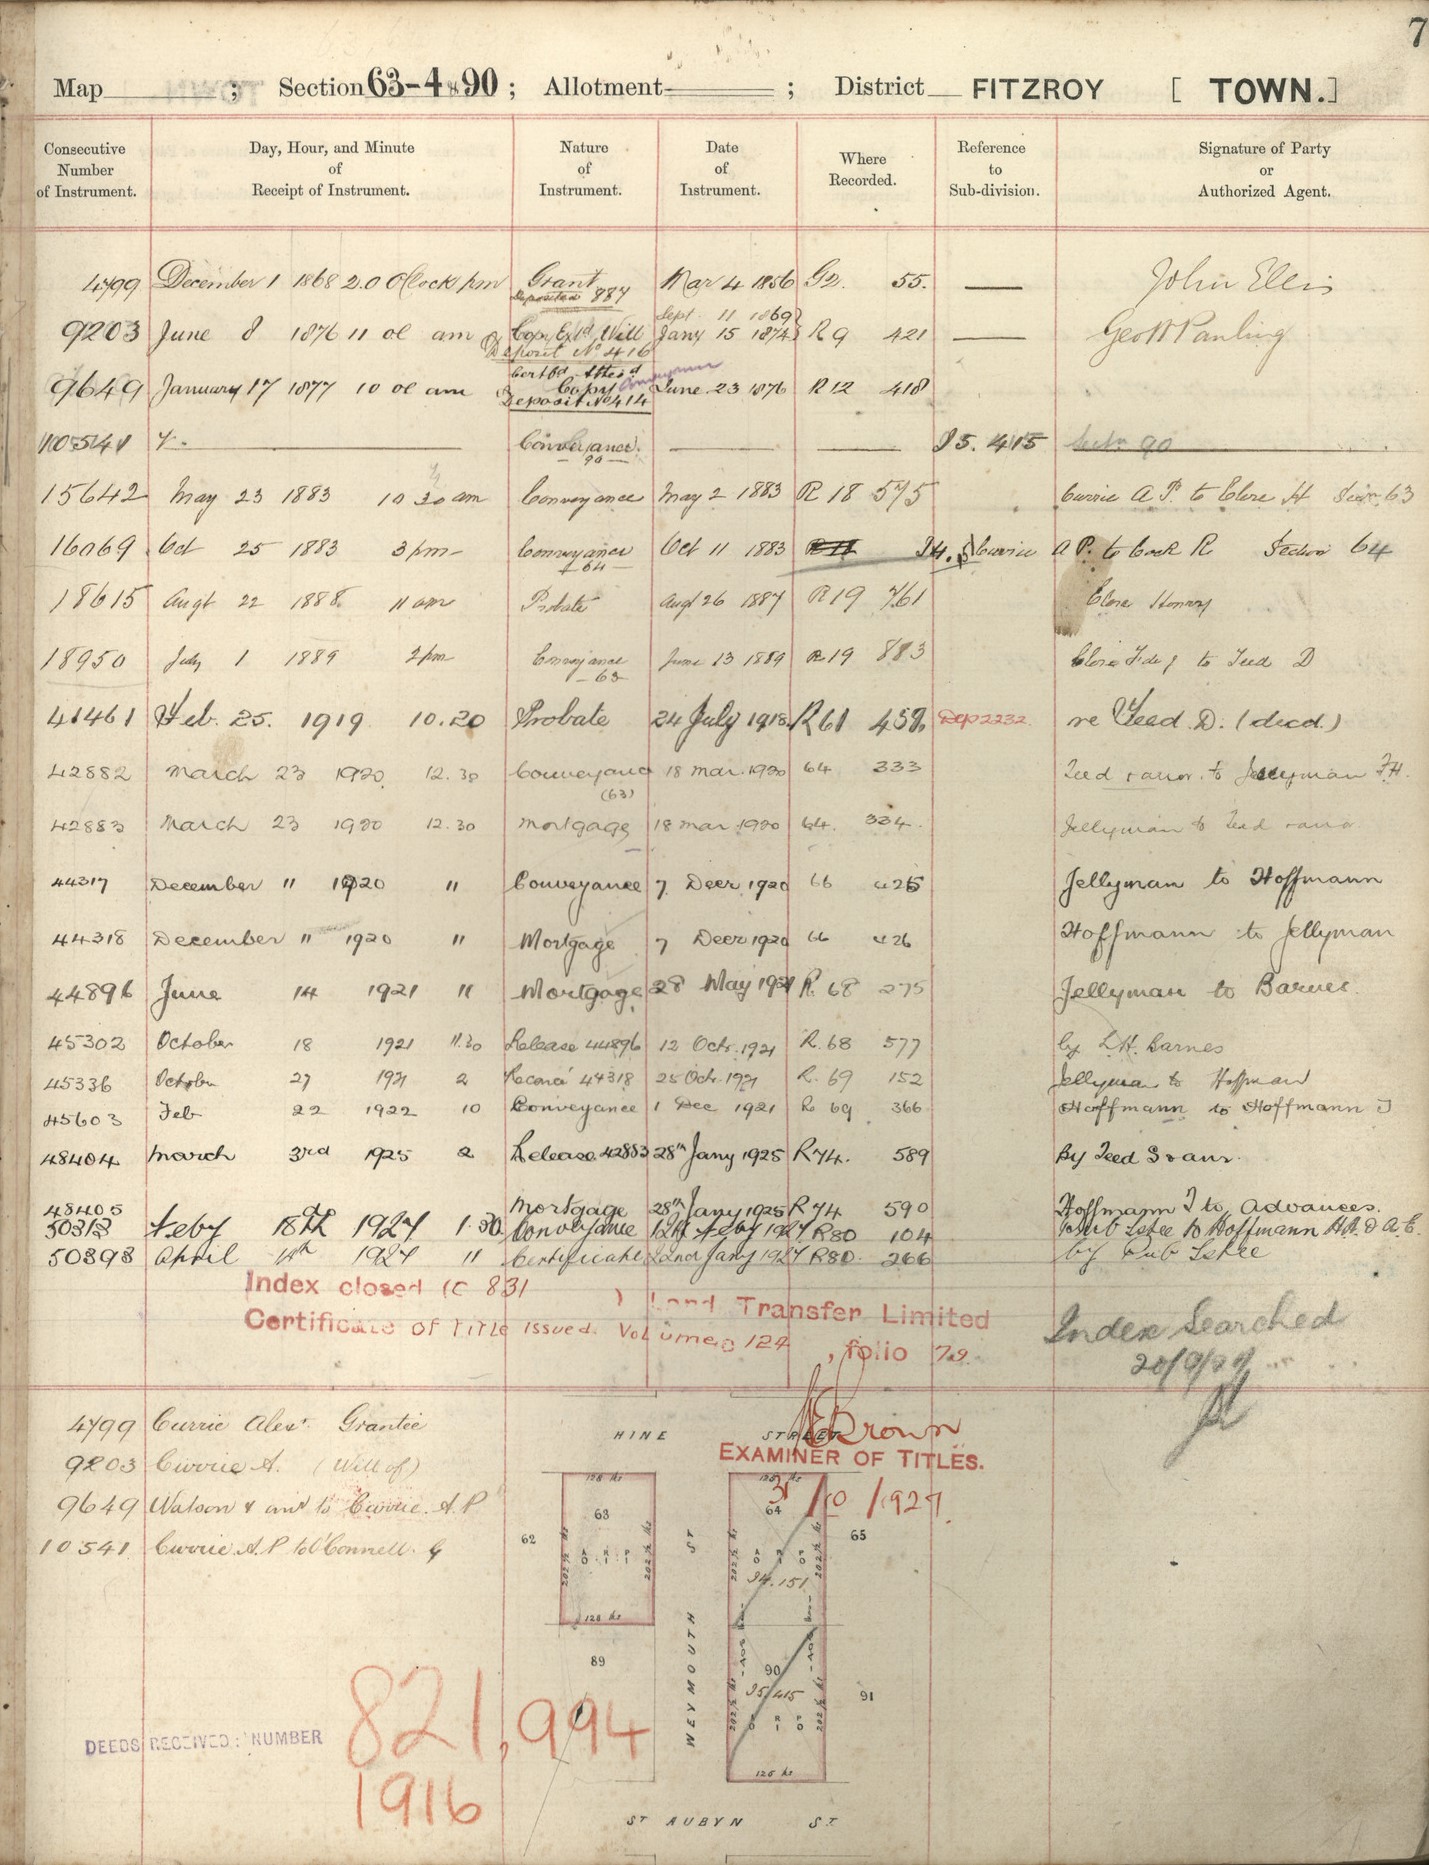 7
Map ; Section 63-4 & 90 ; Allotment ; District FITZROY [ TOWN. ]
Consecutive Number of Instrument. Day, Hour, and Minute of Receipt of Instrument. Nature of Instrument. Date of Instrument. Where Recorded. Reference to Sub-division. Signature of Party or Authorized Agent.
4799 December 1 1868 2.0 O'Clock pm Grant Mar 4 1856 G2. 55. — John Ellis
Deposited 887
Sept 11 1869
9203 June 8 1876 11 ol am Copy Extd Will Jany 15 1874 R9 421 —
Deposit No 416
Certfd Attesd
9649 January 17 1877 10 ol am Copy June 23 1876 R12 418
Deposit No 414
10541 Conveyance I5. 415 Sectn 90
90
15642 May 23 1883 10 30 am Conveyance May 2 1883 R 18 575 Currie A P. to Clore H Secn 63
16069 Oct 25 1883 3 pm Conveyance Oct 11 1883 Currie A P. to Cock R Section 64
64
18615 Augt 22 1888 11 am Probate Augt 26 1887 R19 761 Clore Henry
18950 July 1 1889 2 pm Conveyance June 13 1889 R19 883 to Teed D
63
41461 Feb. 25. 1919 10.20 Probate 24 July 1918. R61 458 Dep 2232. re Teed. D. (decd.)
42882 March 23 1920 12.30 Conveyance 18 Mar. 1920 64 333 Teed & anor. to Jellyman F.H.
(63)
42883 March 23 1920 12.30 Mortgage 18 Mar 1920 64. 334. Jellyman to Teed & anor
44317 December " 1920 " Conveyance 7 Decr 1920 66 425 Jellyman to Hoffmann
44318 December " 1920 " Mortgage 7 Decr 1920 66 426 Hoffmann to Jellyman
44896 June 14 1921 " Mortgage 28 May 1921 R. 68 275 Jellyman to Barnes.
45302 October 18 1921 11.30 Release 44896 12 Octr. 1921 R. 68 577 by L.H. Barnes
45336 October 27 1921 2 44318 25 Octr. 1921 R. 69 152 Jellyman to Hoffman
45603 Feb 22 1922 10 Conveyance 1 Dec 1921 R 69 366 Hoffmann to Hoffmann J
48404 March 3rd 1925 2 Release 42883 28th Jany 1925 R74. 589 By Teed & anr.
48405 Mortgage 28th Jany 1925 R74 590 Hoffmann J to Advances.
50313 Feby 18th 1927 1.30 Conveyance 12th Feby 1927 R80 104 Pub Tstee to Hoffmann
50393 April 1927 " Certificate 22nd Jany 1927 R80. 266 by Pub Tstee
Index closed (C 831 ) Land Transfer Limited
Certificate of Title issued. Volume 124, folio 79.
Index Searched
20/9/27
4799 Currie Alexr. Grantee
9203 Currie A. (Will of)
9649 Watson & anr to Currie. A. P
10541 Currie A. P to O'Connell. G
HINE STREET
Brown
EXAMINER OF TITLES.
3/10/1927.
128 lks
62 63 64 65
202½ lks
A R P
0 1 1
A R P
0 1 0
I4. 151
128 lks
WEYMOUTH ST
89 90 91
I5/415
202½ lks
0 1 0
125 lks
ST AUBYN ST.
DEEDS RECEIVED: NUMBER
821,994
1916